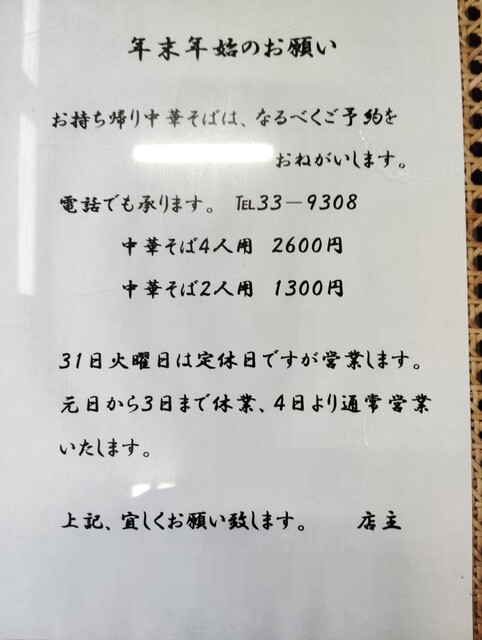 年末年始のお願い
お持ち帰り中華そばは、なるべくご予約を
おねがいします。
電話でも承ります。 ℡33－9308
中華そば4人用 2600円
中華そば2人用 1300円
31日火曜日は定休日ですが営業します。
元日から3日まで休業、4日より通常営業
いたします。
上記、宜しくお願い致します。 店主